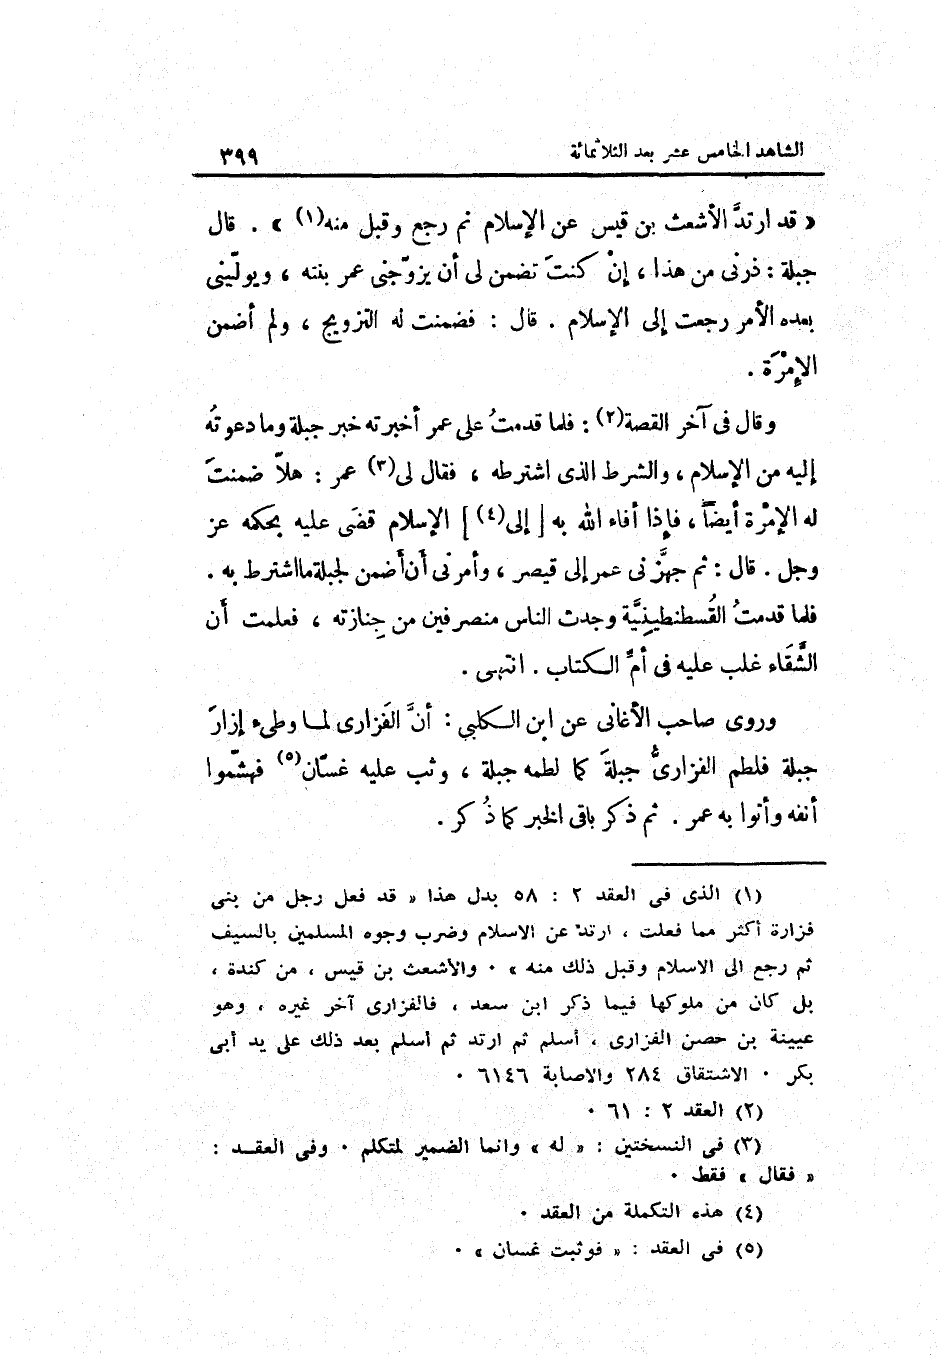 الشاهد الخامس عشر بعد الثلاثمائة ٣٩٩
« قد ارتدَّ الأشعث بن قيس عن الإسلام ثم رجع وقبل منه(١) » . قال
جبلة : ذرنى من هذا ، إنْ كنتَ تضمن لى أن يزوّجنى عمر بنته ، ويولّينى
بعده الأمر رجعت إلى الإسلام . قال : فضمنت له التزويج ، ولم أضمن
الإمْرَة .
وقال فى آخر القصة(٢) : فلما قدمتُ على عمر أخبرته خبر جبلة وما دعوتُه
إليه من الإسلام ، والشرط الذى اشترطه ، فقال لى(٣) عمر : هلاّ ضمنتَ
له الإمْرة أيضاً ، فإذا أفاء الله به [ إلى(٤) ] الإسلام قضَى عليه بحكمه عز
وجل . قال : ثم جهَّزنى عمر إلى قيصر ، وأمرنى أن أضمن لجبلة ما اشترط به .
فلما قدمتُ القُسطنطينِيَّة وجدت الناس منصرفين من جِنازته ، فعلمت أن
الشَّقَاء غلب عليه فى أمِّ الكتاب . انتهى .
وروى صاحب الأغانى عن ابن الكلبي : أنَّ الفَزارى لما وطىء إزارَ
جبلة فلطم الفزارىُّ جبلةَ كما لطمه جبلة ، وثب عليه غسّان(٥) فهشّموا
أنفه وأتوا به عمر . ثم ذَكر باقى الخبر كما ذُكر .
(١) الذى فى العقد ٢ : ٥٨ بدل هذا « قد فعل رجل من بنى
فزارة أكثر مما فعلت ، ارتد عن الاسلام وضرب وجوه المسلمين بالسيف
ثم رجع الى الاسلام وقبل ذلك منه » . والأشعث بن قيس ، من كندة ،
بل كان من ملوكها فيما ذكر ابن سعد ، فالفزارى آخر غيره ، وهو
عيينة بن حصن الفزارى ، أسلم ثم ارتد ثم أسلم بعد ذلك على يد أبى
بكر . الاشتقاق ٢٨٤ والاصابة ٦١٤٦ .
(٢) العقد ٢ : ٦١ .
(٣) فى النسختين : « له » وانما الضمير لمتكلم . وفى العقد :
« فقال » فقط .
(٤) هذه التكملة من العقد .
(٥) فى العقد : « فوثبت غسان » .